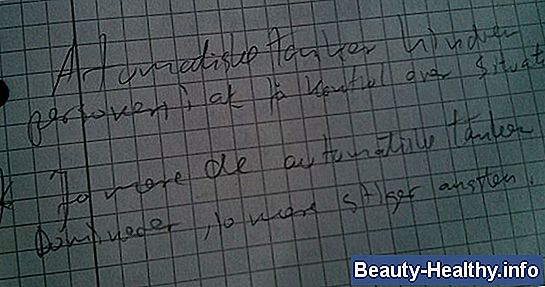 Automatiske tanker hindrer
personen i at få kontrol over situat
Jo mere de automatiske tanker
Dominerer, jo mere stiger angsten.
Beauty-Healthy.info